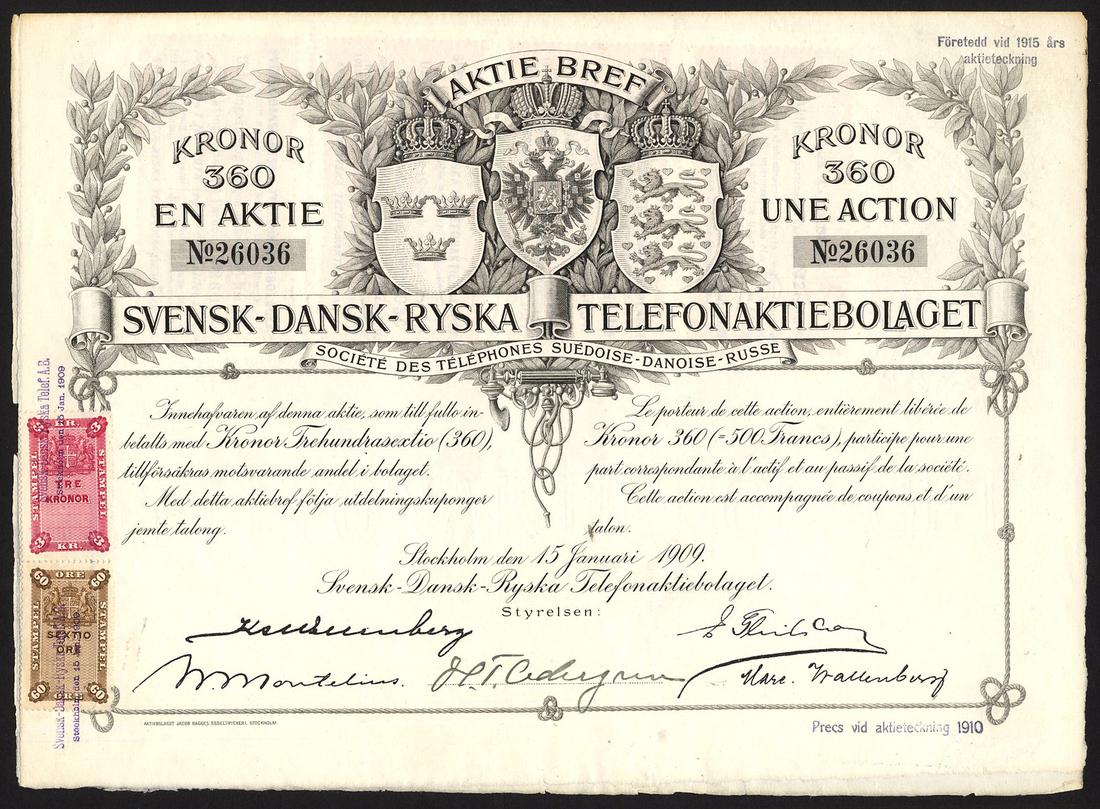 Företedd vid 1915 års
aktieteckning
AKTIE BREF
KRONOR
360
EN AKTIE
No 26036
KRONOR
360
UNE ACTION
No 26036
SVENSK-DANSK-RYSKA TELEFONAKTIEBOLAGET
SOCIÉTÉ DES TÉLÉPHONES SUÉDOISE-DANOISE-RUSSE
Innehafvaren af denna aktie, som till fullo in-
betalts med Kronor Trehundrasextio (360),
tillförsäkras motsvarande andel i bolaget.
Med detta aktiebref följa utdelningskuponger
jemte talong.
Le porteur de cette action, entièrement libérée de
Kronor 360 (=500 Francs), participe pour une
part correspondante à l'actif et au passif de la société.
Cette action est accompagnée de coupons et d'un
talon.
Stockholm den 15 Januari 1909.
Svensk-Dansk-Ryska Telefonaktiebolaget.
Styrelsen:
W. Montelius.
H.T. Cedergren
Marc. Wallenberg
AKTIEBOLAGET JACOB BAGGES SEDELTRYCKERI, STOCKHOLM
Precs vid aktieteckning 1910
3 KR. 3
STAMPEL
STAMPEL
TRE
KRONOR
3 KR. 3
Svensk-Dansk-Ryska Telef. A.B.
Stockholm den 15 Jan. 1909
60 ÖRE 60
STAMPEL
STAMPEL
SEXTIO
ÖRE
60 ÖRE 60
Stockholm den 15 Jan. 1909